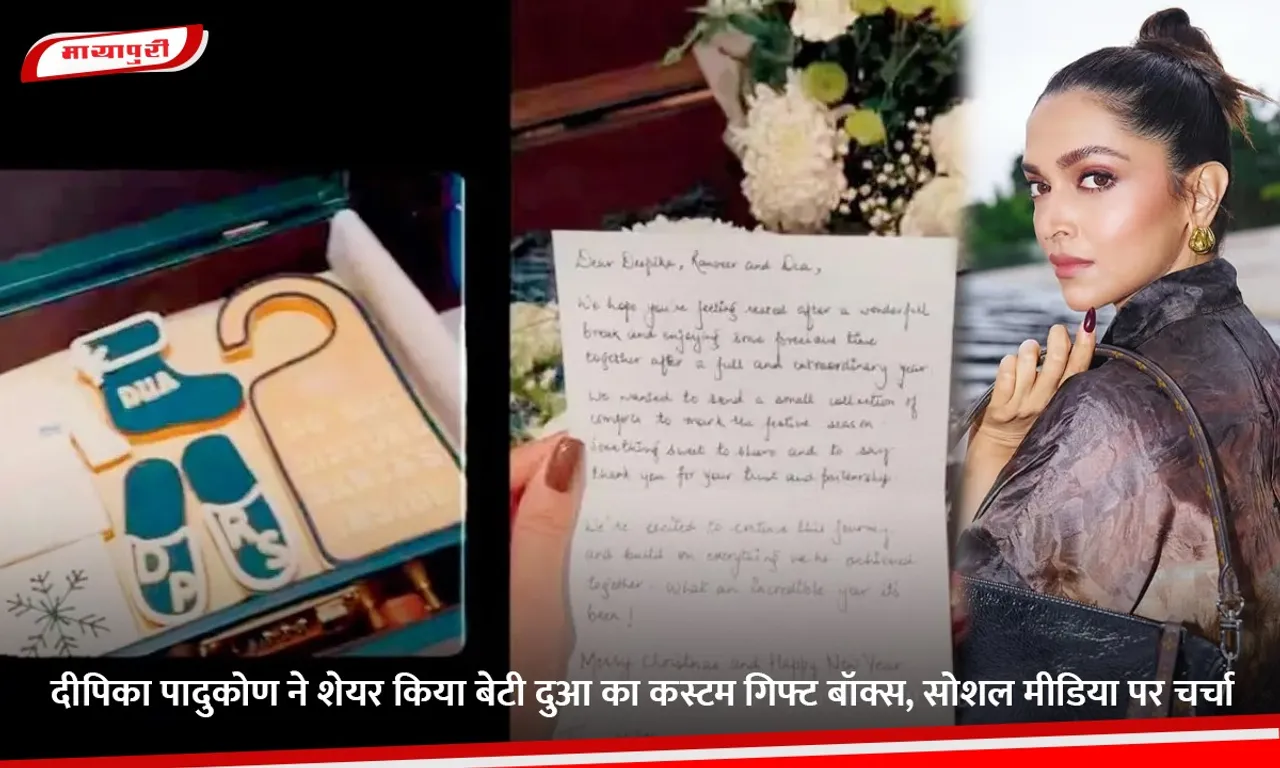 मायापुरी
DUA
DP
RS
Dear Deepika, Ranveer and Dua,
We hope you're feeling rested after a wonderful
break and enjoying some precious time
together after a full and extraordinary year.
We wanted to send a small collection of
comforts to mark the festive season
Something sweet to share and to say
thank you for your trust and partnership.
We're excited to continue this journey
and build on everything we've achieved
together. What an incredible year it's
been!
Merry Christmas and Happy New Year
दीपिका पादुकोण ने शेयर किया बेटी दुआ का कस्टम गिफ्ट बॉक्स, सोशल मीडिया पर चर्चा